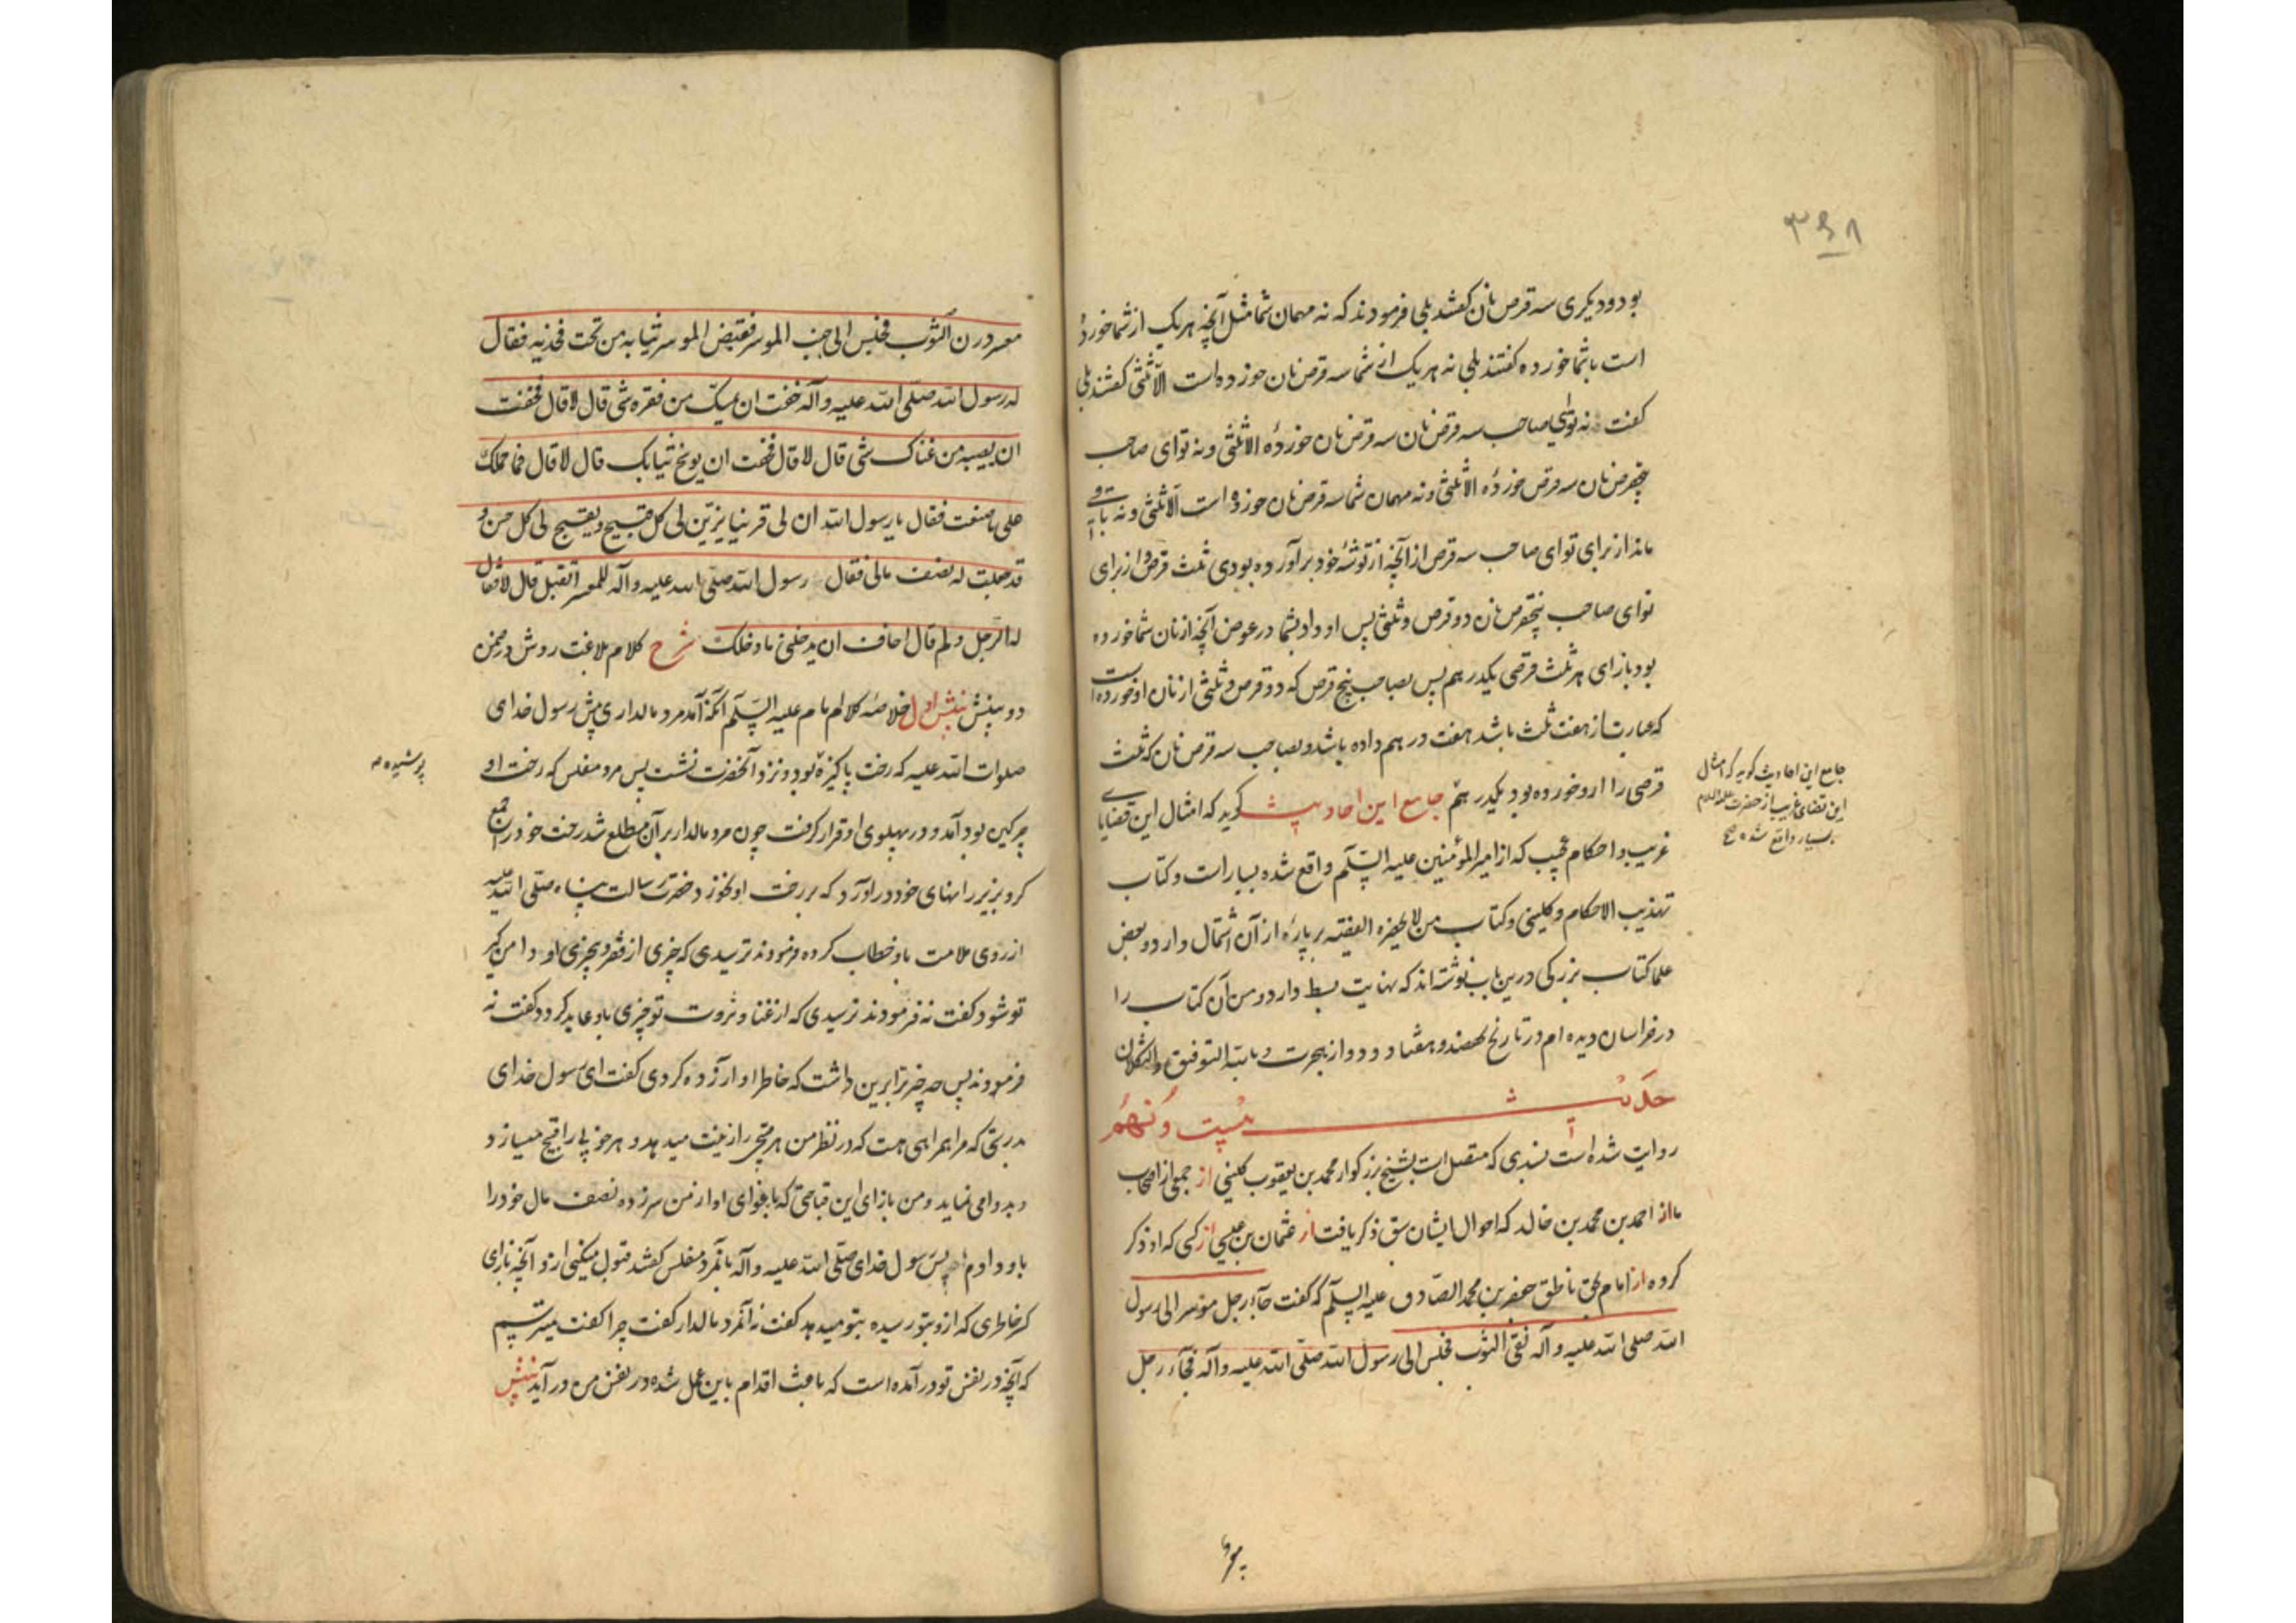 ۳۶۸
بود و دیگری سه قرص نان گفتند بلی فرمودند که نه مهمان شما مثل آنچه هر یک از شما خورده
است با شما خورده گفتند بلی نه هر یک از شما سه قرص نان خورده است الا ثلثی گفتند بلی
گفت نه تو ای صاحب سه قرص نان سه قرص نان خوردهٔ الا ثلثی و نه تو ای صاحب
پنج قرص نان سه قرص خوردهٔ الا ثلثی و نه مهمان شما سه قرص نان خورده است الا ثلثی و نه باقی
ماند از برای تو ای صاحب سه قرص از آنچه از توشهٔ خود برآورده بودی ثلث قرص و از برای
تو ای صاحب پنج قرص نان دو قرص و ثلثی پس او داد بشما در عوض آنچه از نان شما خورده
بود بازای هر ثلث قرصی یکدرهم پس بصاحب پنج قرص که دو قرص و ثلثی از نان او خورده است
که عبارت از هفت ثلث باشد هفت درهم داده باشد و بصاحب سه قرص نان که ثلث
قرصی را از او خورده بود یکدرهم جامع این احادیث گوید که امثال این قضایای
غریب و احکام عجیب که از امیر المؤمنین علیه السلم واقع شده بسیار است و کتاب
تهذیب الاحکام و کلینی و کتاب من لا یحضره الفقیه بر پارهٔ از آن اشتمال دارد و بعض
علما کتاب بزرگی درین باب نوشته‌اند که نهایت بسط دارد و من آن کتاب را
در خراسان دیده‌ام در تاریخ نهصد و هفتاد و دو از هجرت و بالله التوفیق و التکلان
جامع این احادیث گوید که امثال
این قضای غریب از حضرت علیه السلام
بسیار واقع شده صح
حدیث بیست و نهم
روایت شده است بسندی که متصل است بشیخ بزرگوار محمد بن یعقوب کلینی از جمعی از اصحاب
ما از احمد بن محمد بن خالد که احوال ایشان سبق ذکر یافت از عثمان بن عیسی از کسی که او ذکر
کرده از امام بحق ناطق جعفر بن محمد الصادق علیه السلم که گفت جاء رجل موسر الی رسول
الله صلی الله علیه و آله نقی الثوب فجلس الی رسول الله صلی الله علیه و آله فجاء رجل
معسر درن الثوب فجلس الی جنب الموسر فقبض الموسر ثیابه من تحت فخذیه فقال
له رسول الله صلی الله علیه و آله خفت ان یمسک من فقره شی قال لا قال فخفت
ان یصیبه من غناک شی قال لا قال فخفت ان یوسخ ثیابک قال لا قال فما حملک
علی ما صنعت فقال یا رسول الله ان لی قرینا یزین لی کل قبیح و یقبح لی کل حسن و
قد جعلت له نصف مالی فقال رسول الله صلی الله علیه و آله للمعسر اتقبل قال لا فقال
له الرجل و لم قال اخاف ان یدخلنی ما دخلک شرح کلام بلاغت روش در ضمن
دو بینش بینش اول خلاصهٔ کلام امام علیه السلم آنکه آمد مرد مالداری پیش رسول خدای
صلوات الله علیه که رخت پاکیزه بود و نزد آنحضرت نشست پس مرد مفلس که رخت او
پوشیده
چرکین بود آمد و در پهلوی او قرار گرفت چون مرد مالدار بر آن مطلع شد رخت خود را جمع
کرد بزیر رانهای خود درآورد که بر رخت او نخورد حضرت رسالت پناه صلی الله علیه
از روی ملامت باو خطاب کرده فرمودند ترسیدی که چیزی از فقر و بیچیزی او دامن گیر
تو شود گفت نه فرمودند ترسیدی که از غنا و ثروت تو چیزی باو عاید گردد گفت نه
فرمودند پس چه چیز ترا برین داشت که خاطر او آزرده کردی گفت ای رسول خدای
بدرستی که مرا همراهی هست که در نظر من هر قبیحی را زینت میدهد و هر خوبی را قبیح میسازد
و بد وامی نماید و من بازای این قباحتی که باغوای او از من سر زده نصف مال خود را
باو دادم پس رسول خدای صلی الله علیه و آله بآنمرد مفلس گفتند قبول میکنی ازو آنچه بازای
کسر خاطری که ازو بتو رسیده بتو میدهد گفت نه آنمرد مالدار گفت چرا گفت میترسم
که آنچه در نفس تو درآمده است که باعث اقدام باین عمل شده در نفس من درآید بینش